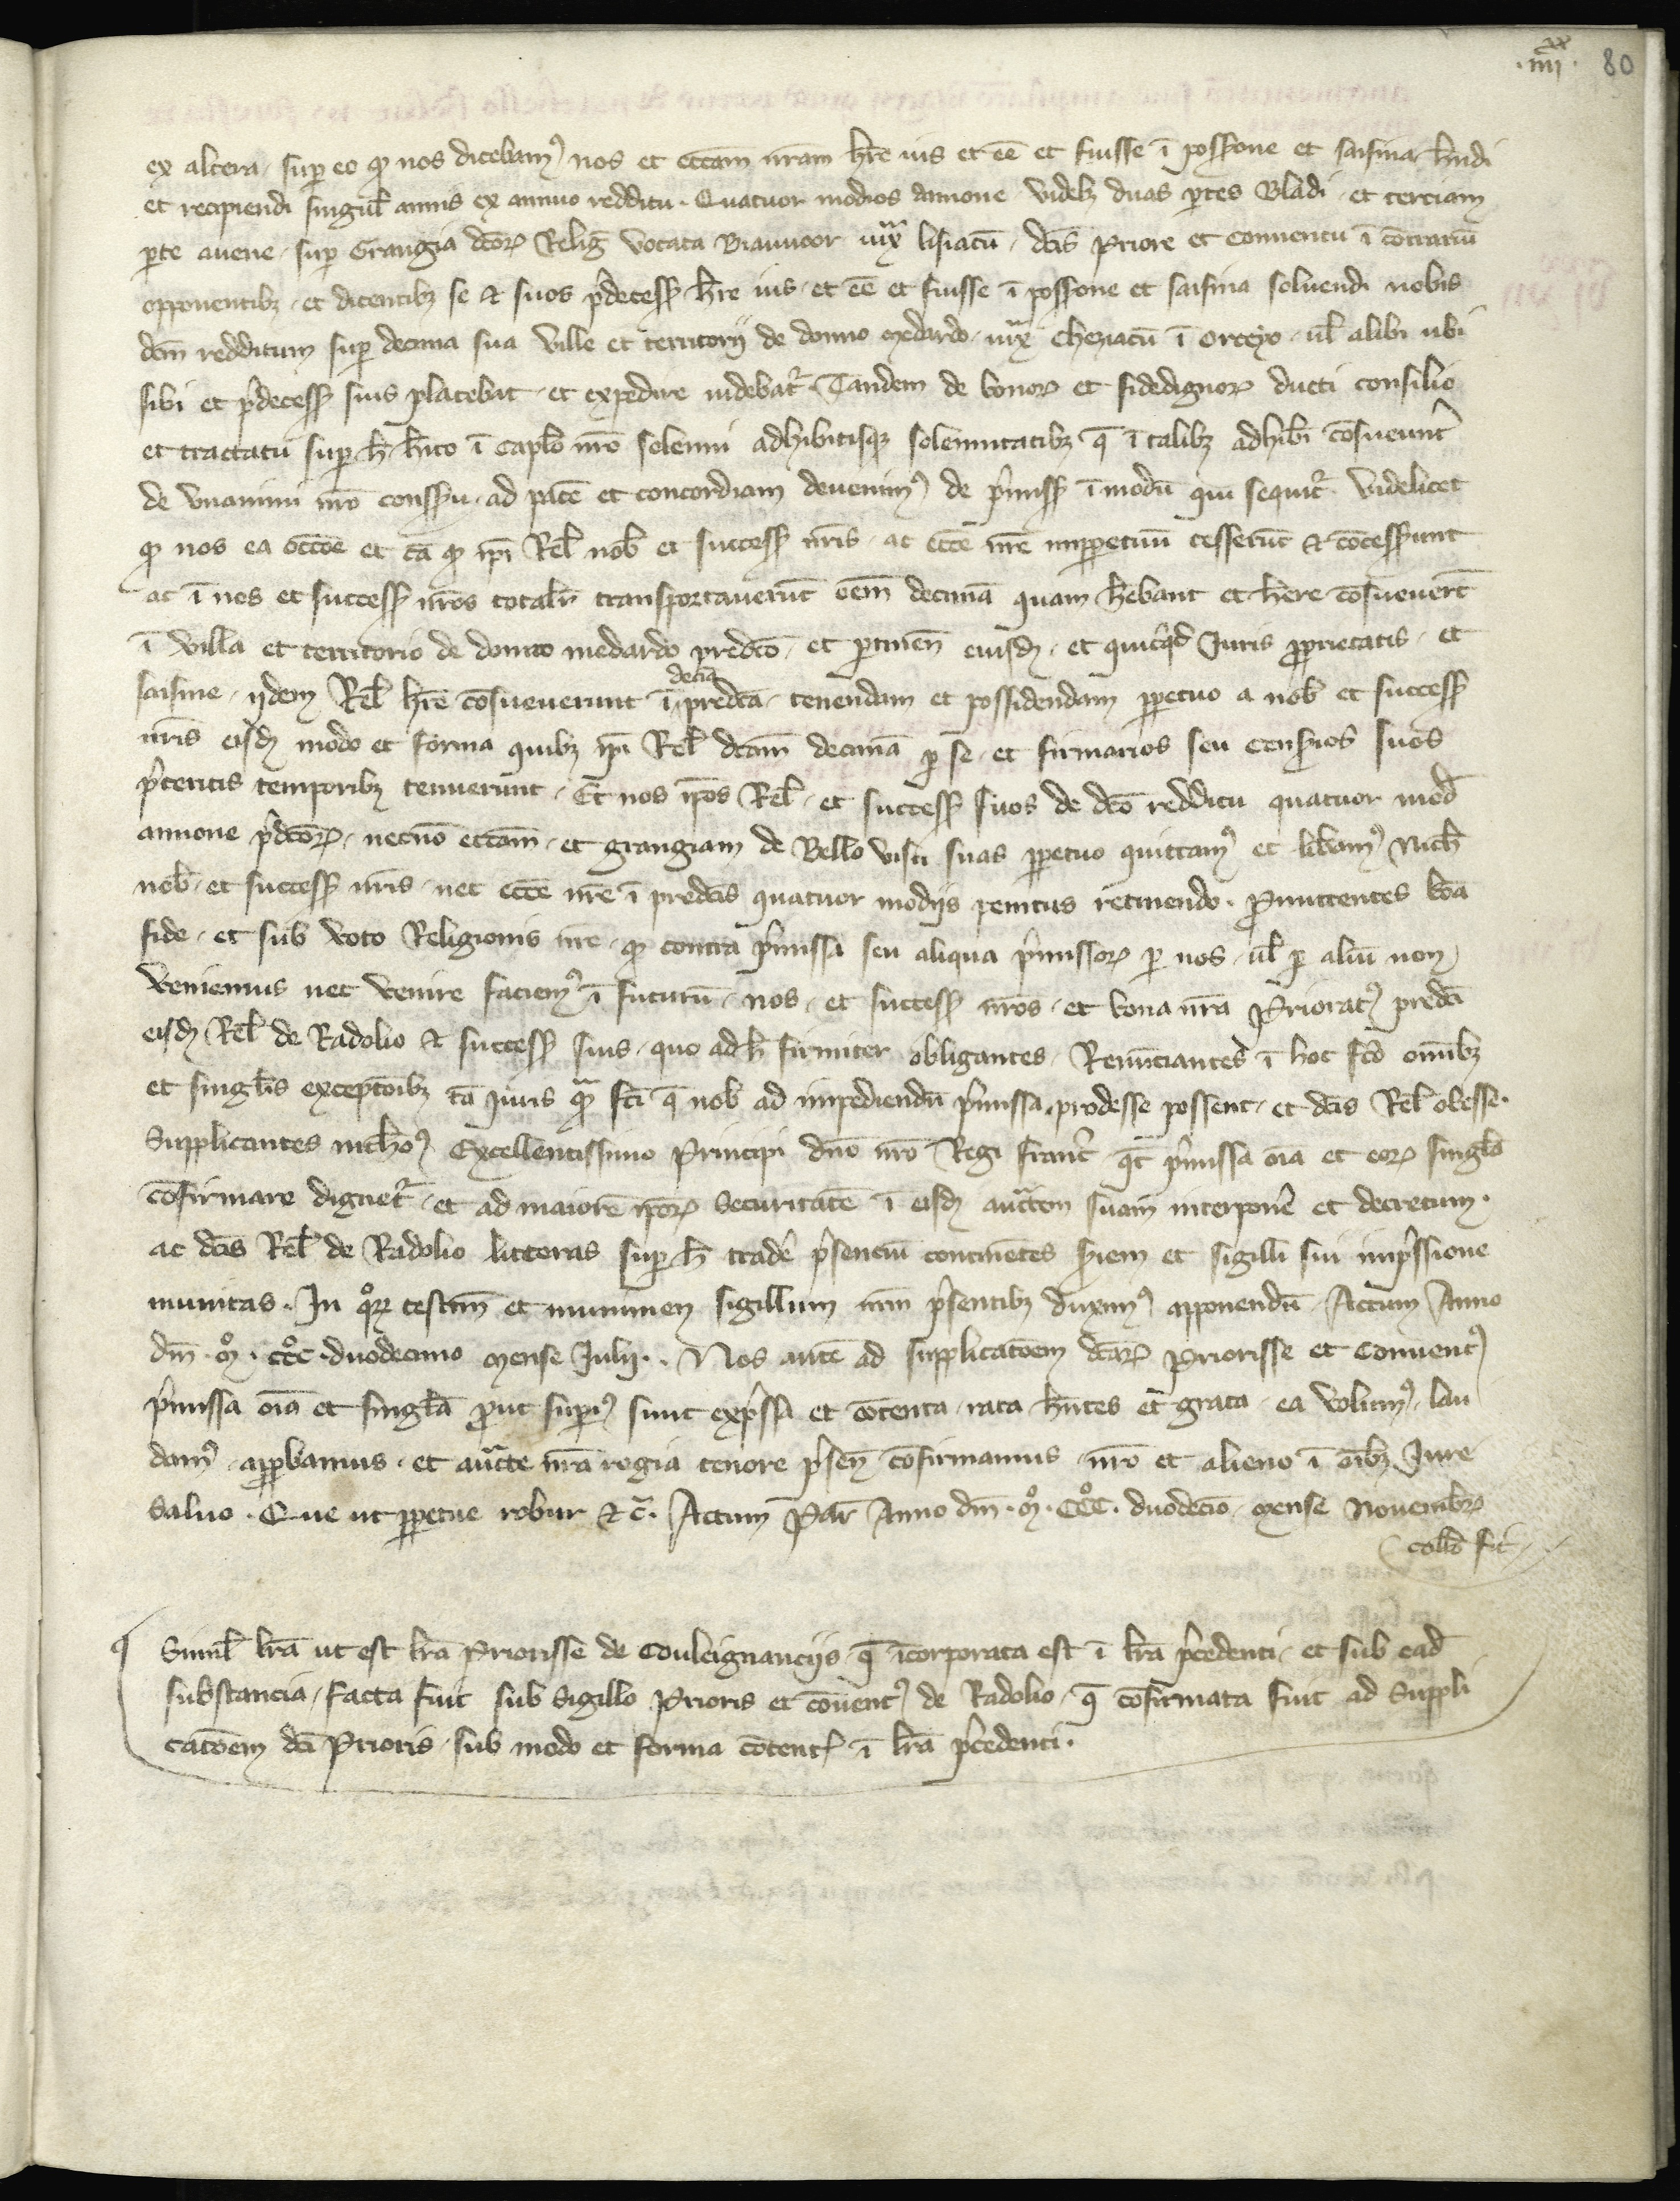 .iiii.xx 80
ex altera, sup eo qp nos dicebam9 nos et eccam nram hre ius et ee et fuisse i possone et saisina hndi
et recipiendi singul annis ex annuo redditu. Quatuor modios annone videlz duas ptes Bladi et terciam
pte auene, sup Grangia dcor Relig vocata Biauuoor iux lisiacu, dcis Priore et Conuentu i cotrariu
opponentibz, et dicentibz se et suos pdecess hre ius, et ee et fuisse i possone et saisina soluendi nobis
dcm redditum sup decima sua ville et territorij de domno medardo, iux cheziacu i orceyo, ul alibi ubi
sibi et pdecess suis placebat, et expedire uidebat. Tandem de bonor et fidedignor ducti consilio
et tractatu sup h hito i caplo nro solenni adhibitisq solennitatibz q i talibz adhibi cosueuut
de vnanimi nro conssu, ad pace et concordiam deuenim9 de pmiss i modu qui sequit. Videlicet
qp nos ea occoe et ca qp ipi Rel nob et success nris, ac ecce nre imppetuu cesserut et cocessunt
ac i nos et success nros totalr transportauerut oem decima quam hebant et here cosueuert
i villa et territorio de domno medardo predco, et ptinen eiusd, et quicqd Juris pprietatis, et
saisine, ijdem Rel hre cosueuerunt i decia predca, tenendam et possidendam ppetuo a nob et success
nris eisd modo et forma quibz ipi Rel dcam decima p se, et firmarios seu censios suos
pteritis temporibz tenuerunt. Et nos ipos Rel, et success suos de dco redditu quatuor mod
annone pdcor, necno eccam, et grangiam de Bello visu suas ppetuo quittam9 et libam9 Nich
nob, et success nris, nec ecce nre i predcis quatuor modijs penitus retinendo. Pmittentes boa
fide, et sub voto Religionis nre, qp contra pmissa seu aliqua pmissor p nos, ul p aliu non
veniemus nec venire faciem9 i futuru, nos, et success nros, et bona nra Priorat9 predci
eisd Rel de Radolio et success suis, quo ad h firmiter obligantes, Renuciantes i hoc fco omibz
et singlis exceptoibz ta juris qp fci q nob ad impediendu pmissa prodesse possent, et dcis Rel obesse.
Supplicantes nichō9 Excellentissimo Principi dno nro Regi franc qt pmissa oia et eor singla
cofirmare dignet, et ad maiore ipor securitate i eisd auctem suam interpone et decretum.
ac dcis Rel de Radolio litteras sup h trade psenciu continetes siem et sigilli sui impssione
munitas. In qor testim et munimen sigillum nrm psentibz duxim9 apponendu. Actum Anno
dm. m. ccc. duodecimo mense Julij. Nos aute ad supplicatoem dcar Priorisse et Conuent9
pmissa oia et singla put supi9 sunt expssa et cotenta, rata hntes et grata, ea volum9, lau
dam9, appbamus, et aucte nra regia tenore psen cofirmamus, nro et alieno i oibz Jure
saluo. Que ut ppetue robur etc. Actum Par Anno dm. m. ccc. duodecio, mense Nouembr
collo fit
Simil lra ut est lra Priorisse de Couleignancijs q icorporata est i lra pcedenti, et sub ead
substancia, facta fuit sub sigillo Prioris et couent9 de Radolio, q cofirmata fuit ad Suppli
catoem dci Prioris, sub modo et forma cotent i lra pcedenti.